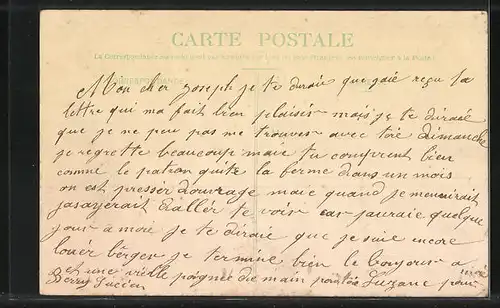 CARTE POSTALE
Mon cher Joseph je te diraie que gaie reçu ta
lettre qui ma fait bien plaisir mais je te diraie
que je ne peu pas me trouver avec toie dimanche
je regrette beaucoup maie tu comprent bien
comme le patron quite la ferme dans un mois
on est presser d'ouvrage maie quand je
jasayerait d'aller te voir car jauraie quelque
jour à moie je te diraie que je suie encore
louér bérger je termine bien le
et une poignée de main
Berry Lucien